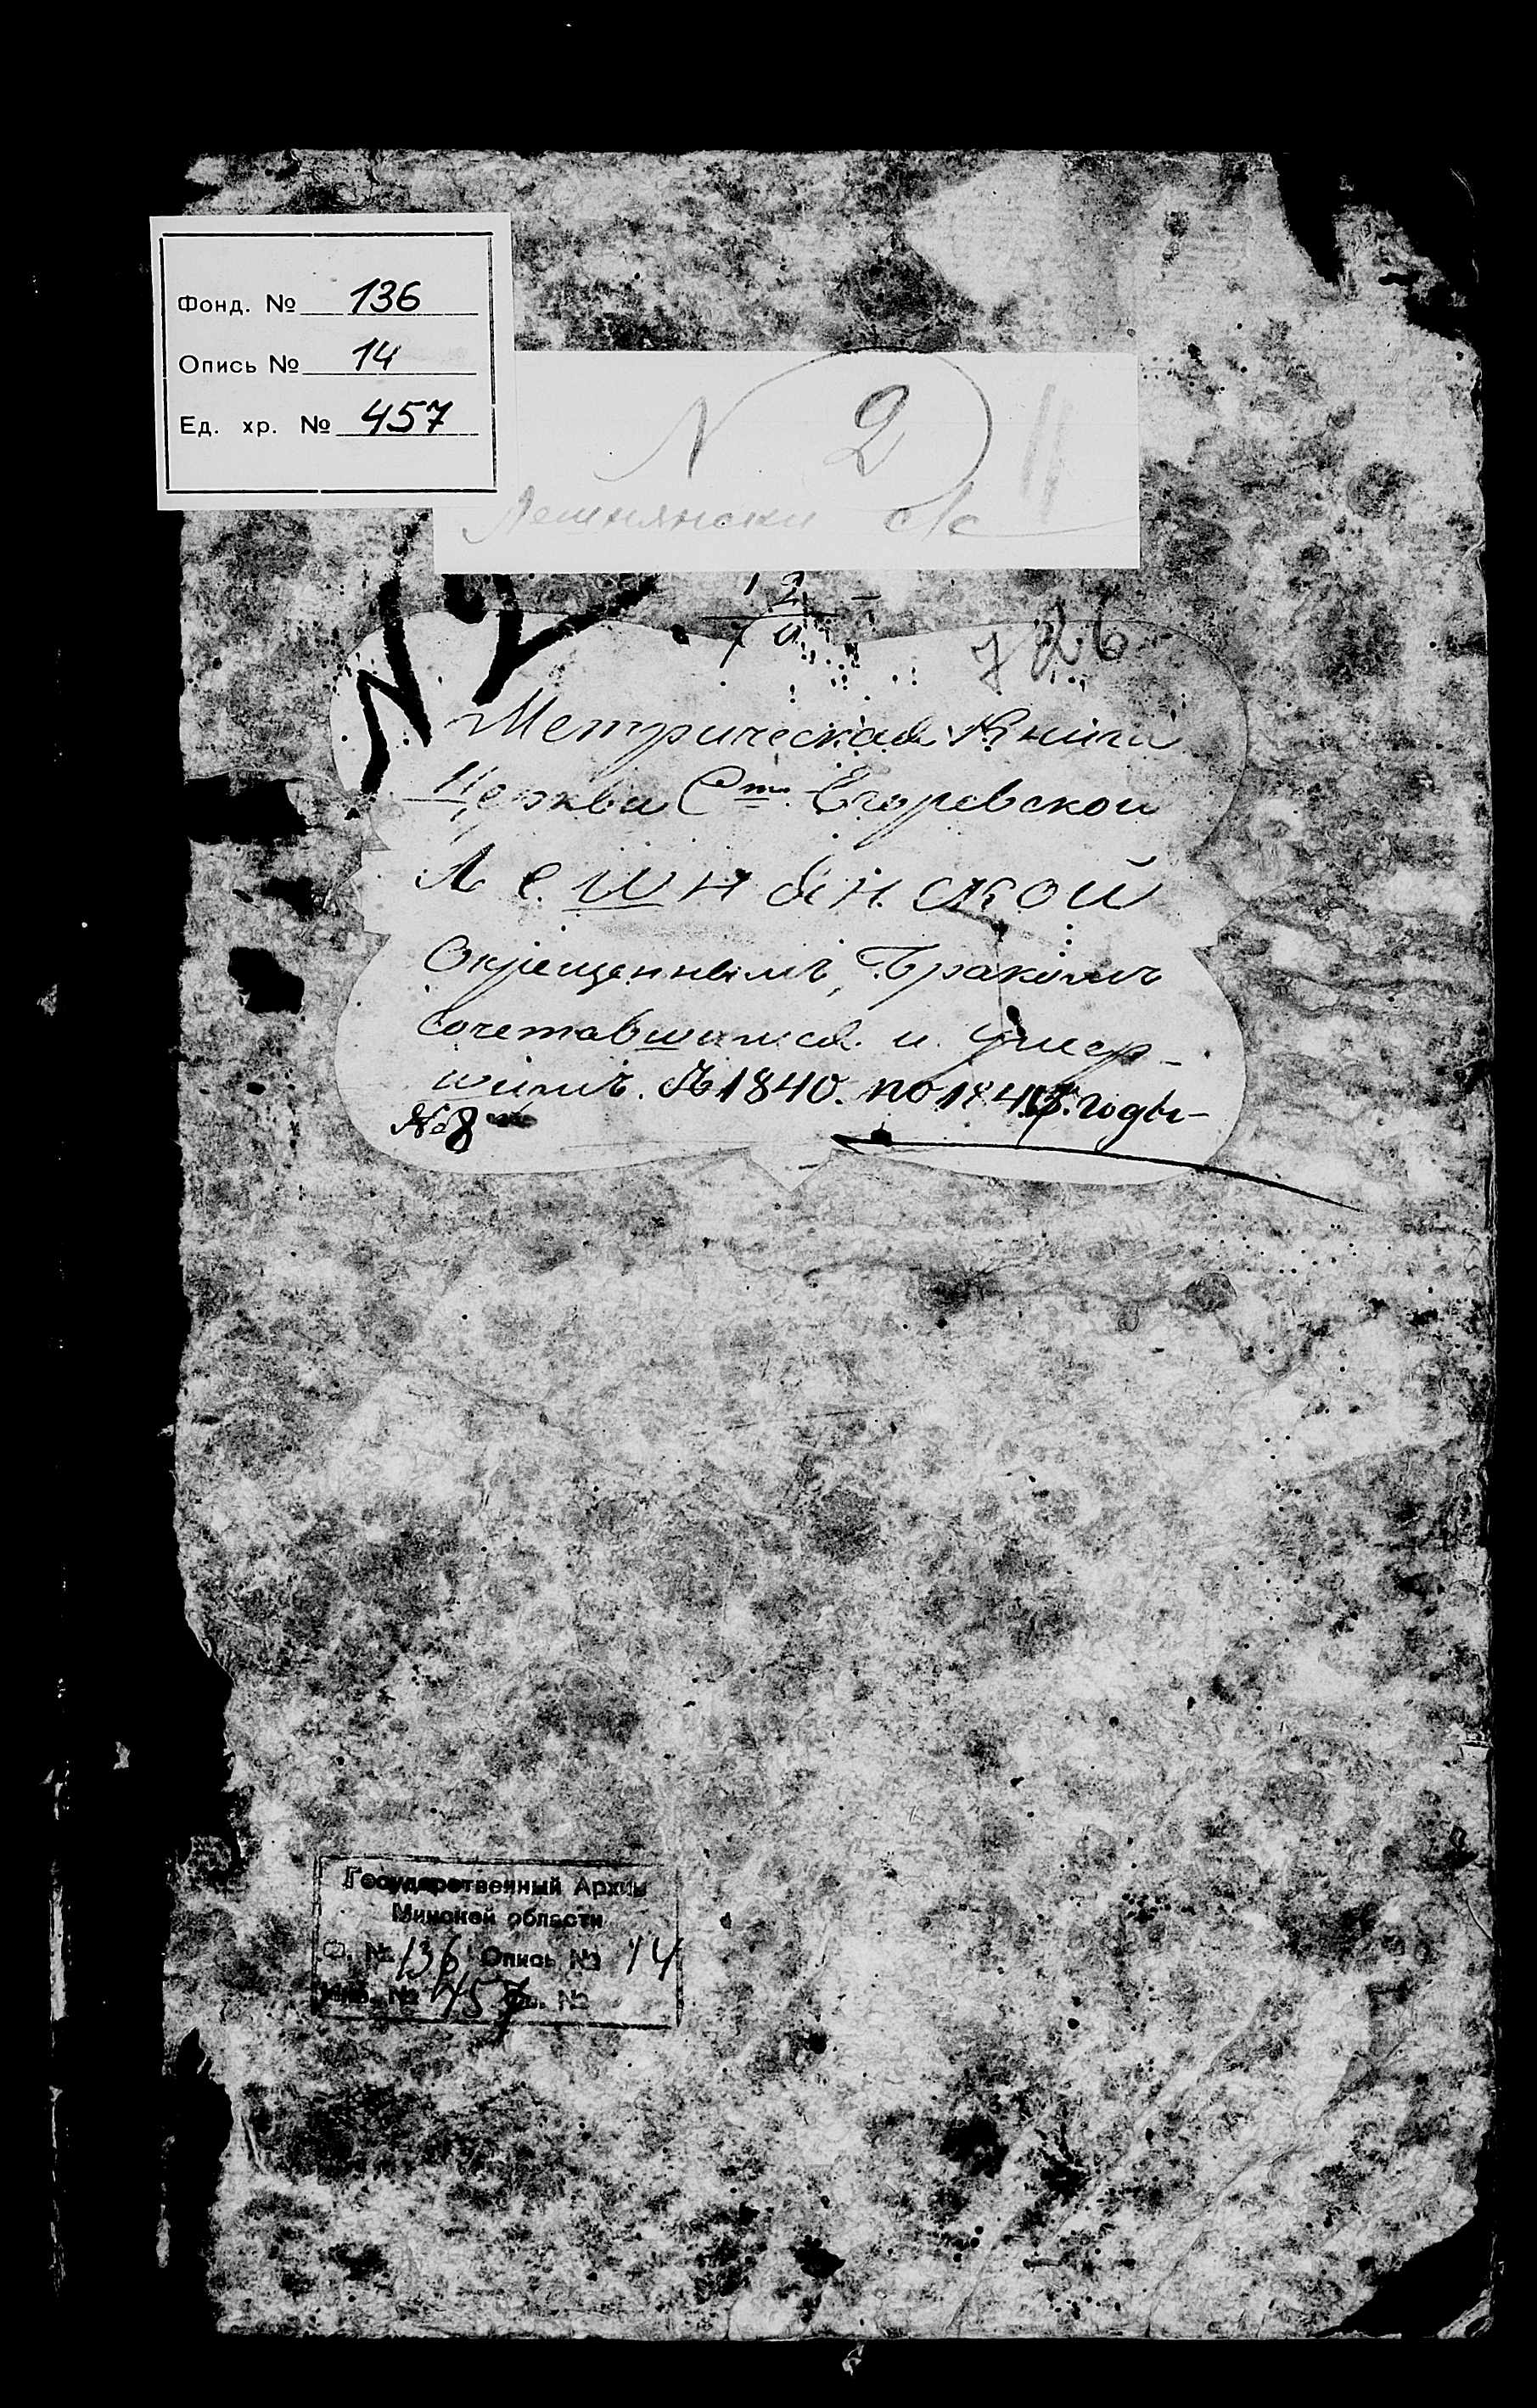 Фонд. № 136
Опись № 14
Ед. хр. № 457
N 2
Лешнянски с/с
N 2
12
726
Метрическая Книга
Церкви Ст. Егоревской
Лешнянской
Окрещеннымъ, Бракомъ
Сочетавшимся и умер-
шимъ. Съ 1840. по 184 годы-
№ 8
Государственный Архив
Минской области
Ф. № 136 Опись № 14
№ 457 №